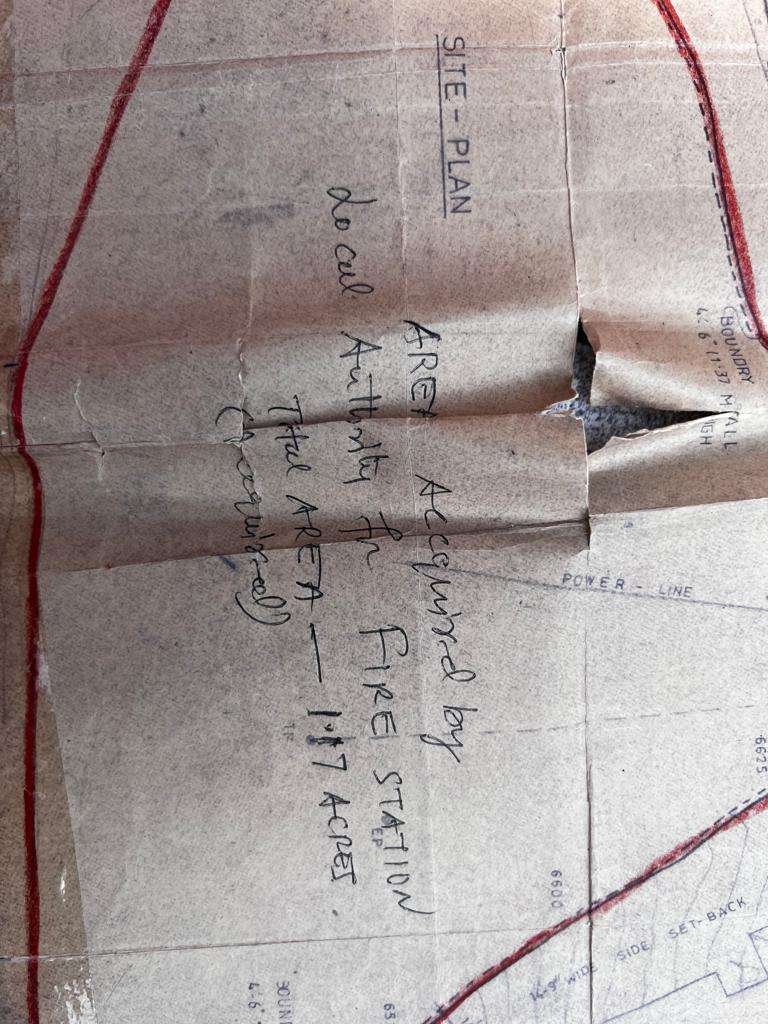 SITE - PLAN
AREA Accquired by
Local Authority for FIRE STATION
Total AREA — 1.17 ACRES.
(Accquired)
BOUNDRY WALL
4'-6" (1.37 M HIGH
POWER - LINE
6625
6600
WIDE SIDE SET-BACK
EP
BOUN
4'-6"